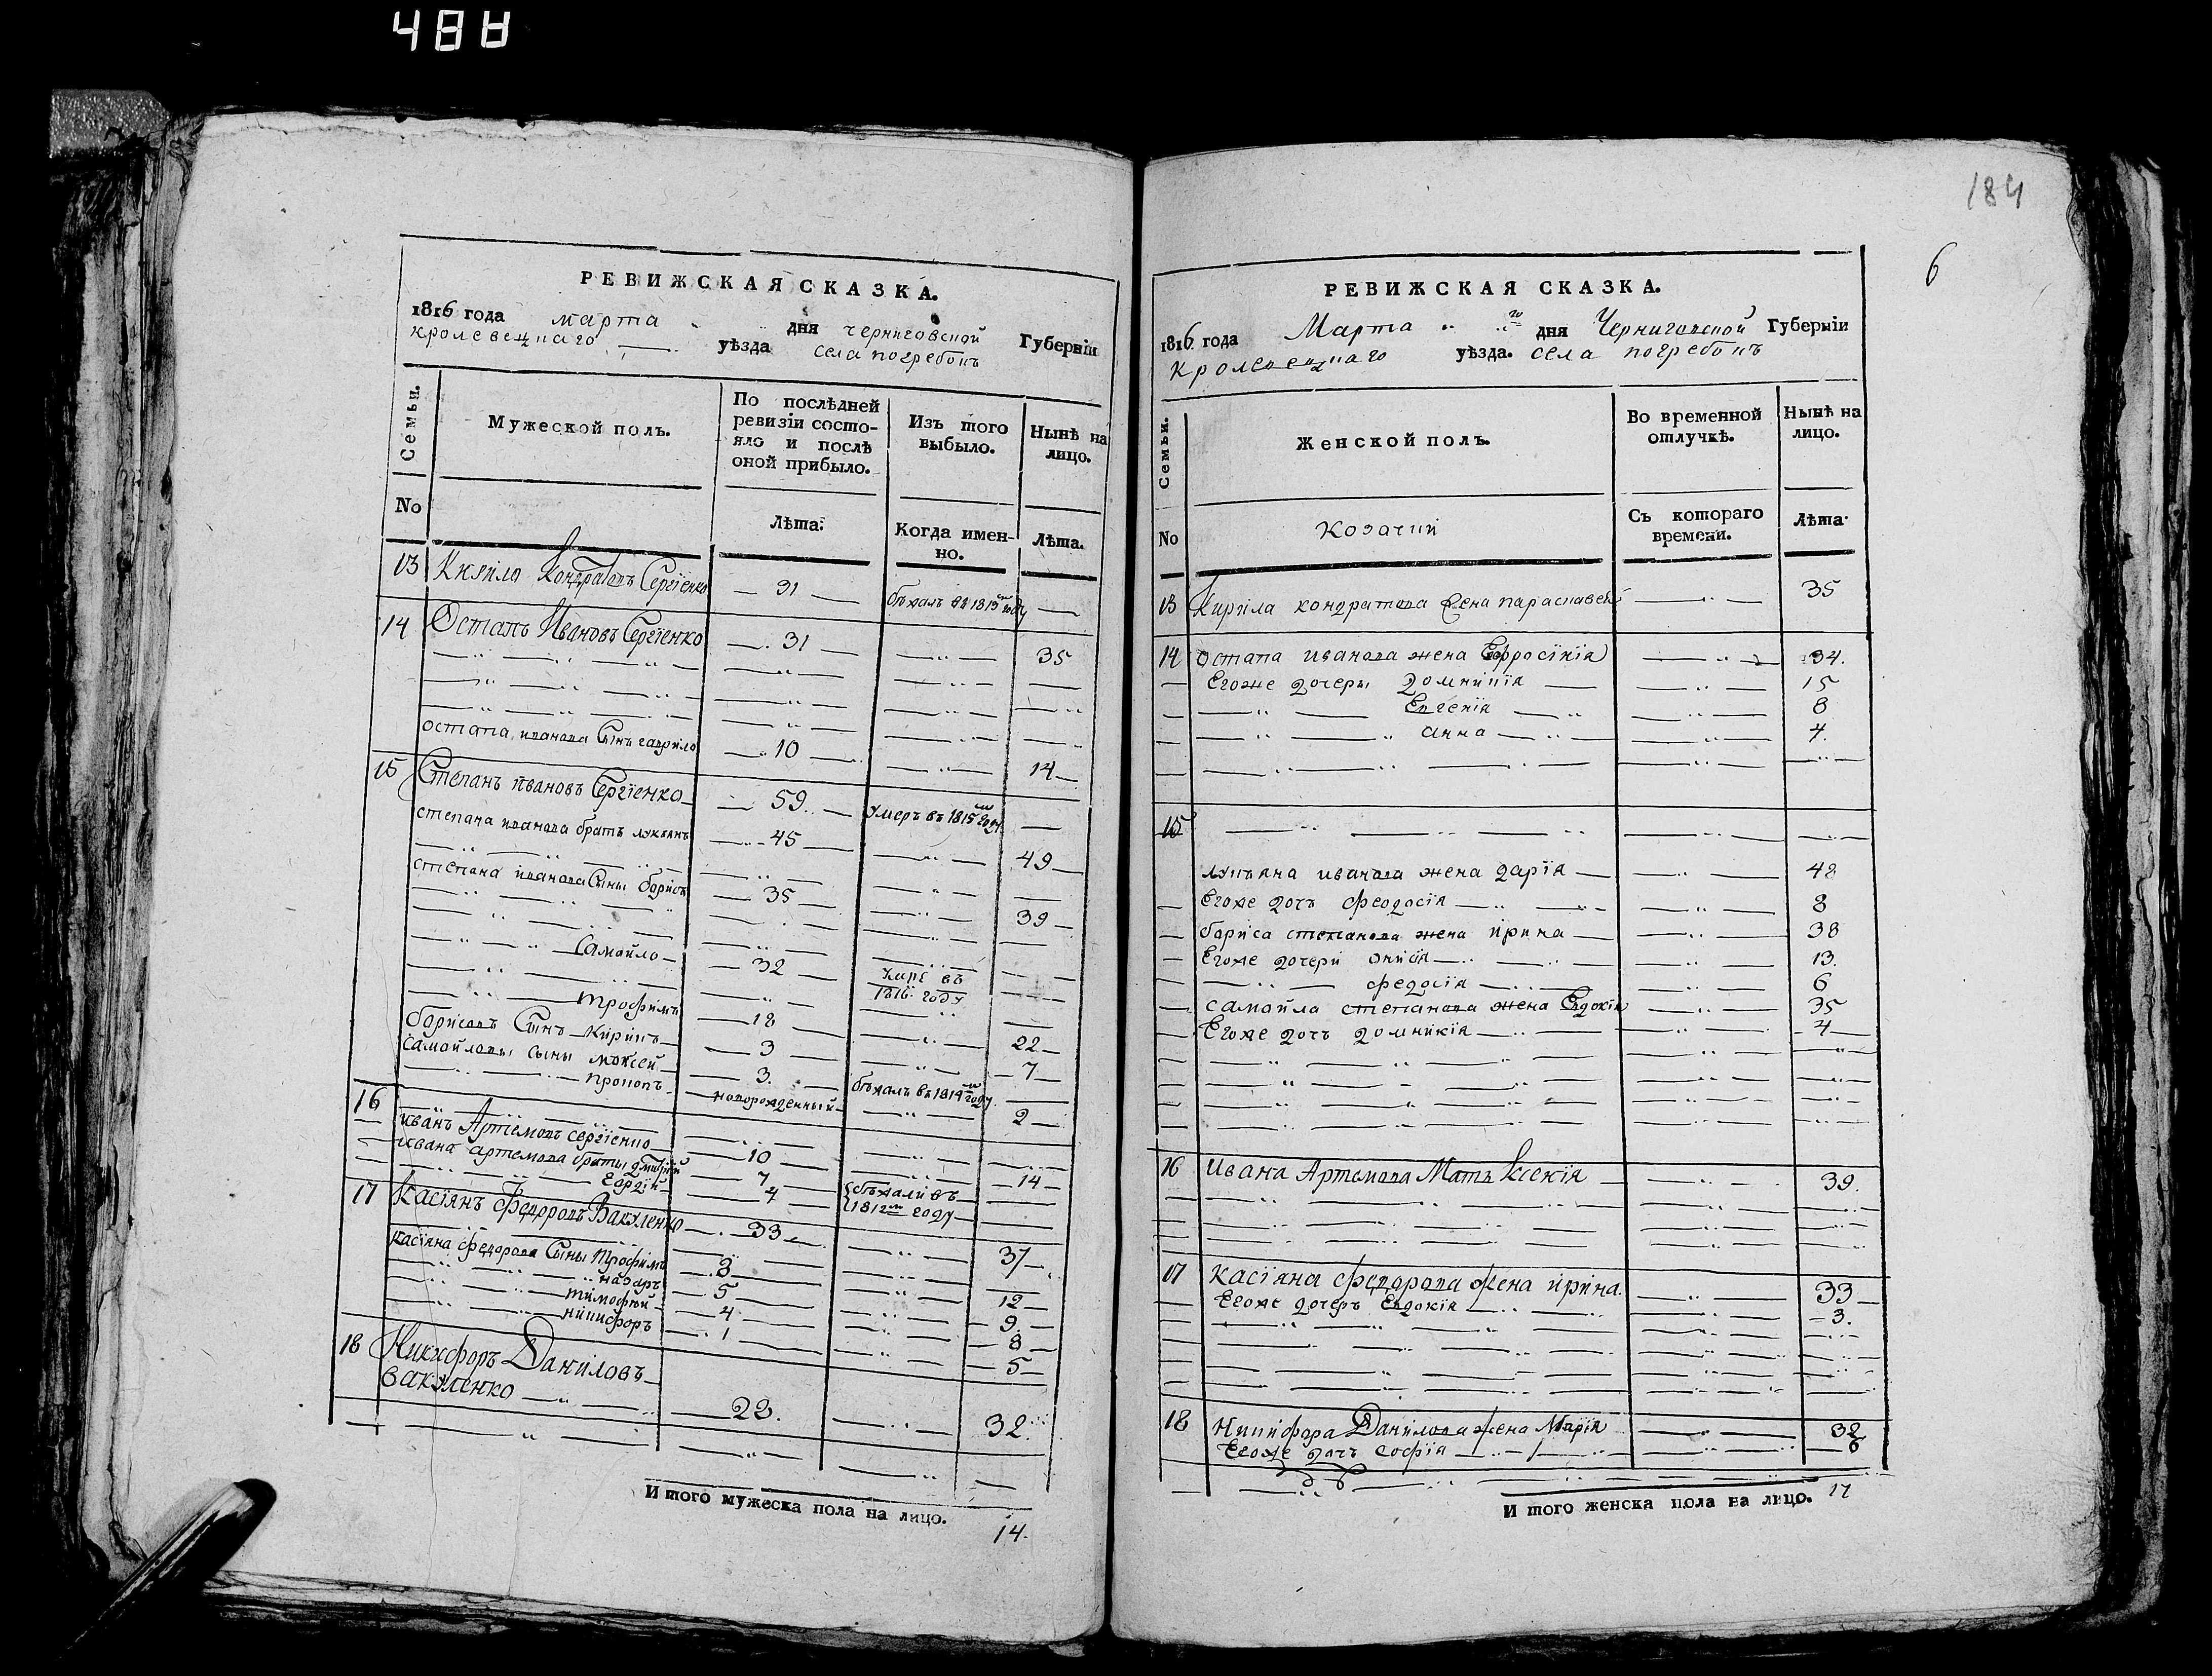 488
РЕВИЖСКАЯ СКАЗКА.
1816 года марта дня черниговской Губерніи
кролевецнаго уѣзда села погребовъ
Семьи.
Мужеской полъ.
По послѣдней ревизіи состояло и послѣ оной прибыло.
Изъ того выбыло.
Нынѣ на лицо.
No
Лѣта.
Когда именно.
Лѣта.
13 Кирило Кондратовъ Сергіенко 31 бѣжалъ въ 1813м году
14 Остапъ Ивановъ Сергіенко 31 35
остапа иванова Сынъ гаврило 10 14
15 Степанъ ивановъ Сергіенко 59 умеръ въ 1815м году
степана иванова братъ лукъянъ 45 49
степана иванова Сыны борисъ 35 39
Самойло 32 году
трофимъ 18 22
борисовъ Сынъ 3 7
самойловы сыны мойсей 3 бѣжалъ въ 1814м году
прокопъ новорожденный 2
16 иванъ Артемовъ сергіенко 10 14
ивана артемова браты дмитрій 7 бѣжали въ
4 1812м году
17 Касіянъ Федоровъ Вакуленко 33 37
касіяна федорова Сыны трофимъ 8 12
назаръ 5 9
тимофій 4 8
никифоръ 1 5
18 Никифоръ Даниловъ
вакуленко 28 32
И того мужеска пола на лицо. 14.
184
6
РЕВИЖСКАЯ СКАЗКА.
1816 года Марта го дня Черниговской Губерніи
Кролевецнаго уѣзда. села погребовъ
Семьи.
Женской полъ.
Во временной отлучкѣ.
Нынѣ на лицо.
No
Козачий
Съ котораго времени.
Лѣта.
13 Кирила кондратова жена параскавея 35
14 остапа иванова жена Ефросінія 34.
Егоже дочеры домникія 15
Евгенія 8
анна 4.
15
лукъяна иванова жена дарія 48
Егоже дочъ феодосія 8
бориса степанова жена ирина 38
Егоже дочери 13.
федосія 6
самойла степанова жена Евдокія 35
Егоже дочъ домникія 4
16 ивана Артемова Мать Ксенія 39.
17 касіяна федорова жена ирина. 33
Егоже дочеръ Евдокія 3.
18 Никифора Данилова жена Марія 32
Егоже дочъ софія 6
И того женска пола на лицо. 17